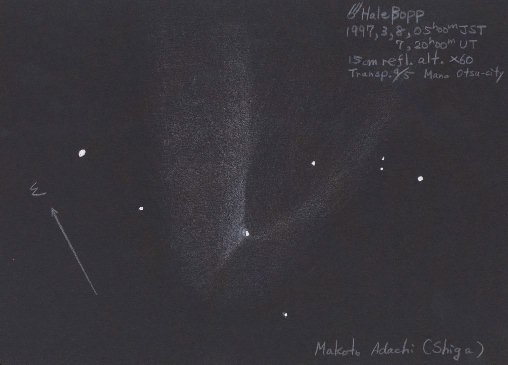 Hale Bopp
1997, 3, 8, 05ʰ00ᵐ JST
7, 20ʰ00ᵐ UT
15cm refl. alt. ×60
Transp. 4/5 Mano Otsu-city
Makoto Adachi (Shiga)